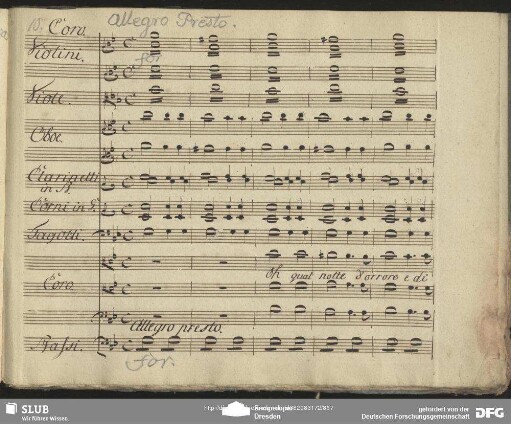 10. Coro. Allegro Presto.
Violini. for
Viole.
Oboe.
Clarinetti
in A
Corni in G.
Fagotti.
Oh qual notte d'orrore e di
Coro.
Allegro presto.
Bassi.
for.
SLUB
Wir führen Wissen.
Dresden
gefördert von der
Deutschen Forschungsgemeinschaft
DFG